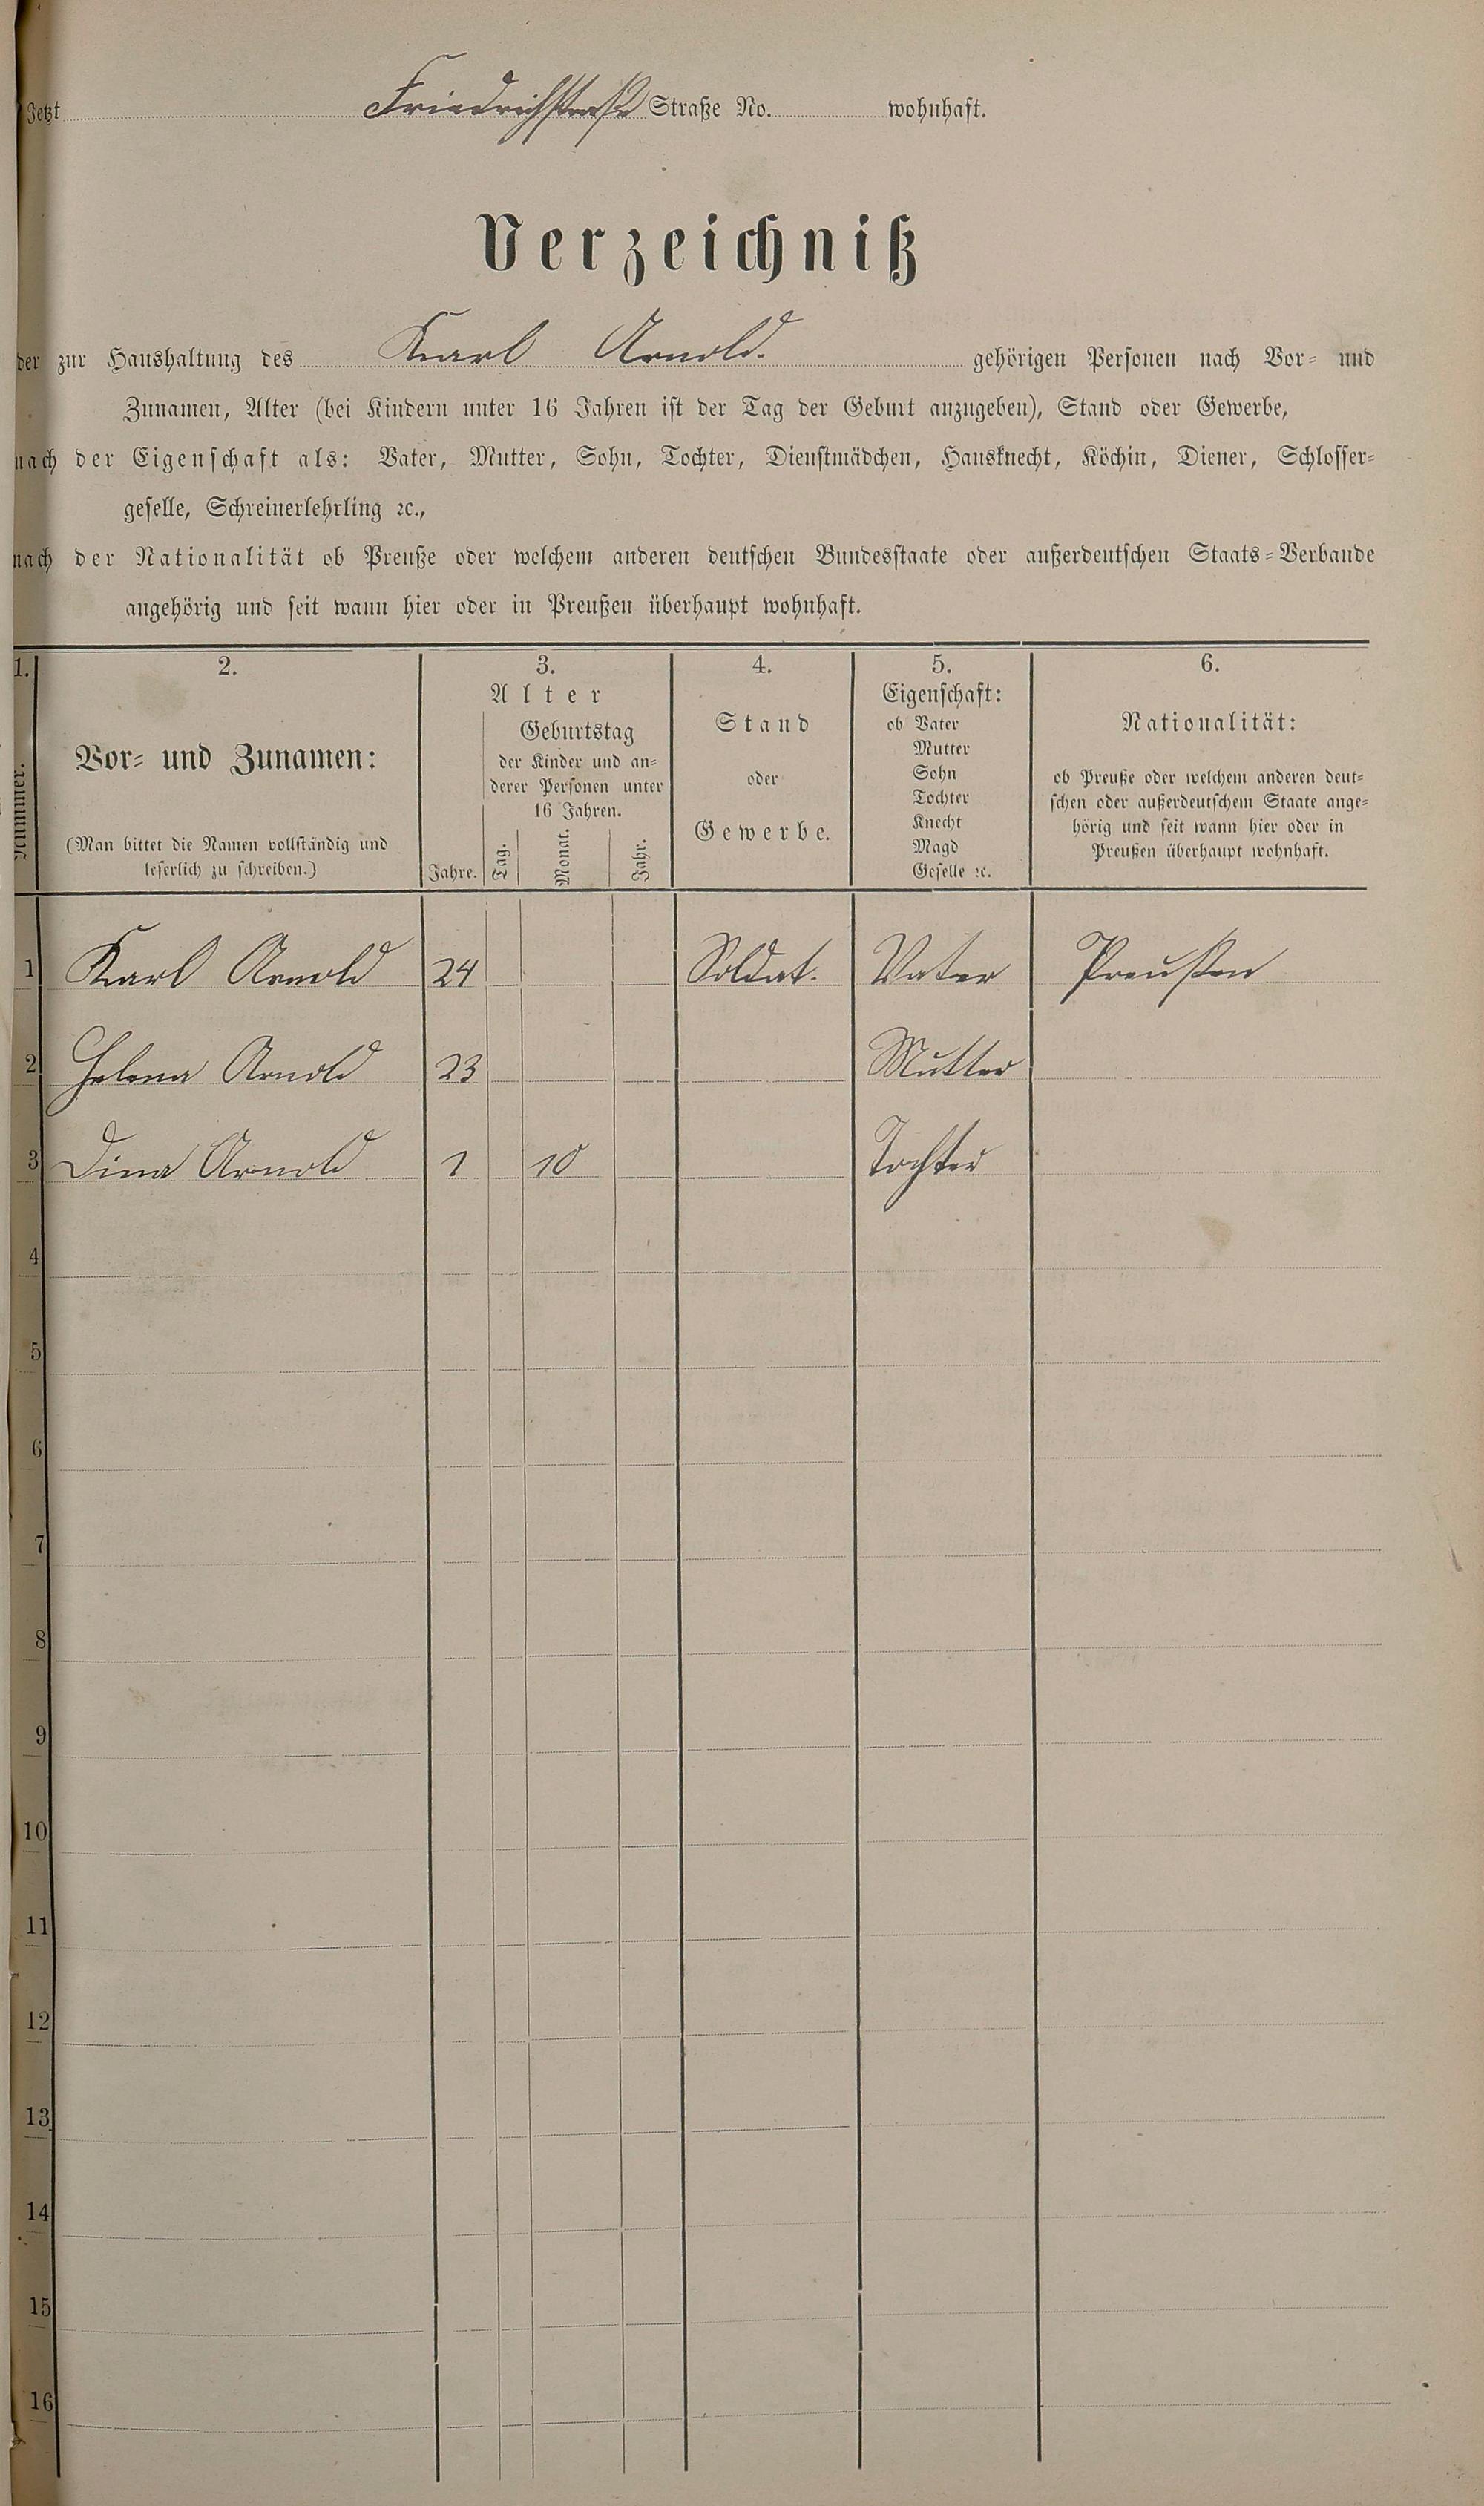 Jetzt Friedrichstraße Straße No. wohnhaft.
Verzeichniß
der zur Haushaltung des Karl Arnold. gehörigen Personen nach Vor- und
Zunamen, Alter (bei Kindern unter 16 Jahren ist der Tag der Geburt anzugeben), Stand oder Gewerbe,
nach der Eigenschaft als: Vater, Mutter, Sohn, Tochter, Dienstmädchen, Hausknecht, Köchin, Diener, Schlosser-
geselle, Schreinerlehrling ꝛc.,
nach der Nationalität ob Preuße oder welchem anderen deutschen Bundesstaate oder außerdeutschen Staats-Verbande
angehörig und seit wann hier oder in Preußen überhaupt wohnhaft.
1. 2. 3. 4. 5. 6.
Nummer.
Vor- und Zunamen:
(Man bittet die Namen vollständig und
leserlich zu schreiben.)
Alter
Jahre.
Geburtstag
der Kinder und an-
derer Personen unter
16 Jahren.
Tag. Monat. Jahr.
Stand
oder
Gewerbe.
Eigenschaft:
ob Vater
Mutter
Sohn
Tochter
Knecht
Magd
Geselle ꝛc.
Nationalität:
ob Preuße oder welchem anderen deut-
schen oder außerdeutschem Staate ange-
hörig und seit wann hier oder in
Preußen überhaupt wohnhaft.
1 Karl Arnold 24 Soldat. Vater Preußen
2 Helena Arnold 23 Mutter
3 Dina Arnold 1 10 Tochter
4
5
6
7
8
9
10
11
12
13
14
15
16